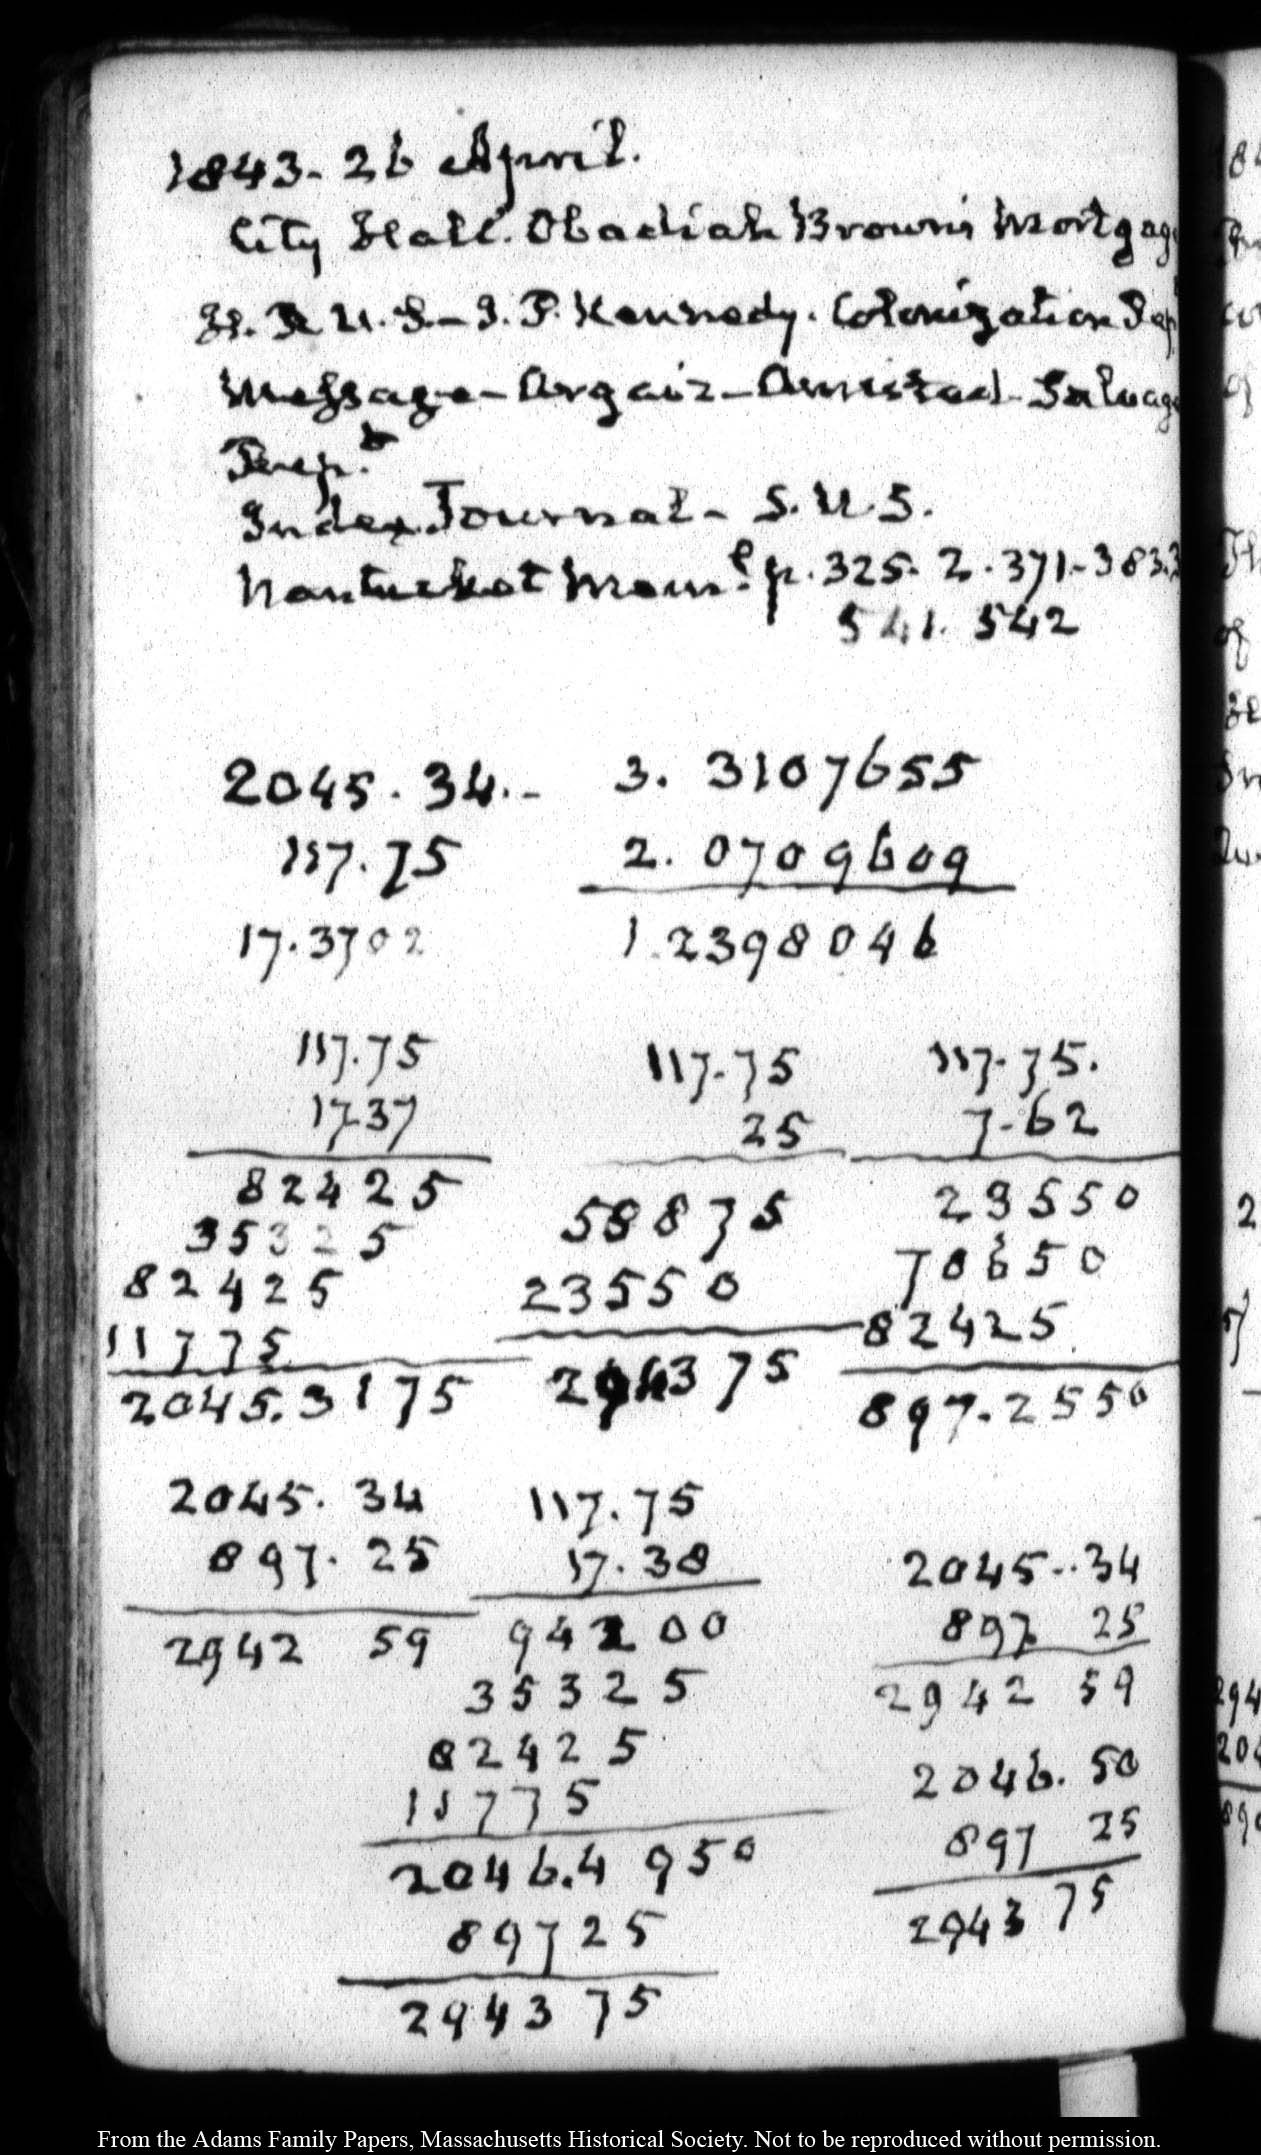 1843. 26 April.
City Hall. Obadiah Brown's Mortgage
H. R U. S. – J. P. Kennedy. Colonization Rep
Message – Argaiz – Amistad – Salvage
Rep.t
Index Journal – S. U. S.
Nantucket Mem.l p. 325. 2. 371 – 383.3
541. 542
2045. 34. – 3. 3107655
117. 75 2. 0709609
17. 3702 1. 2398046
117.75 117.75 117.75.
17.37 25 7.62
82425 58875 23550
35325 23550 70650
82425 294375 82425
11775 897.2550
2045.3175
2045. 34 117.75
897. 25 17.38 2045..34
2942 59 94200 897 25
35325 2942 59
82425 2046. 50
11775 897 25
2046.4950 2943 75
89725
294375
84
of
Th
of
2
294
204
890
From the Adams Family Papers, Massachusetts Historical Society. Not to be reproduced without permission.